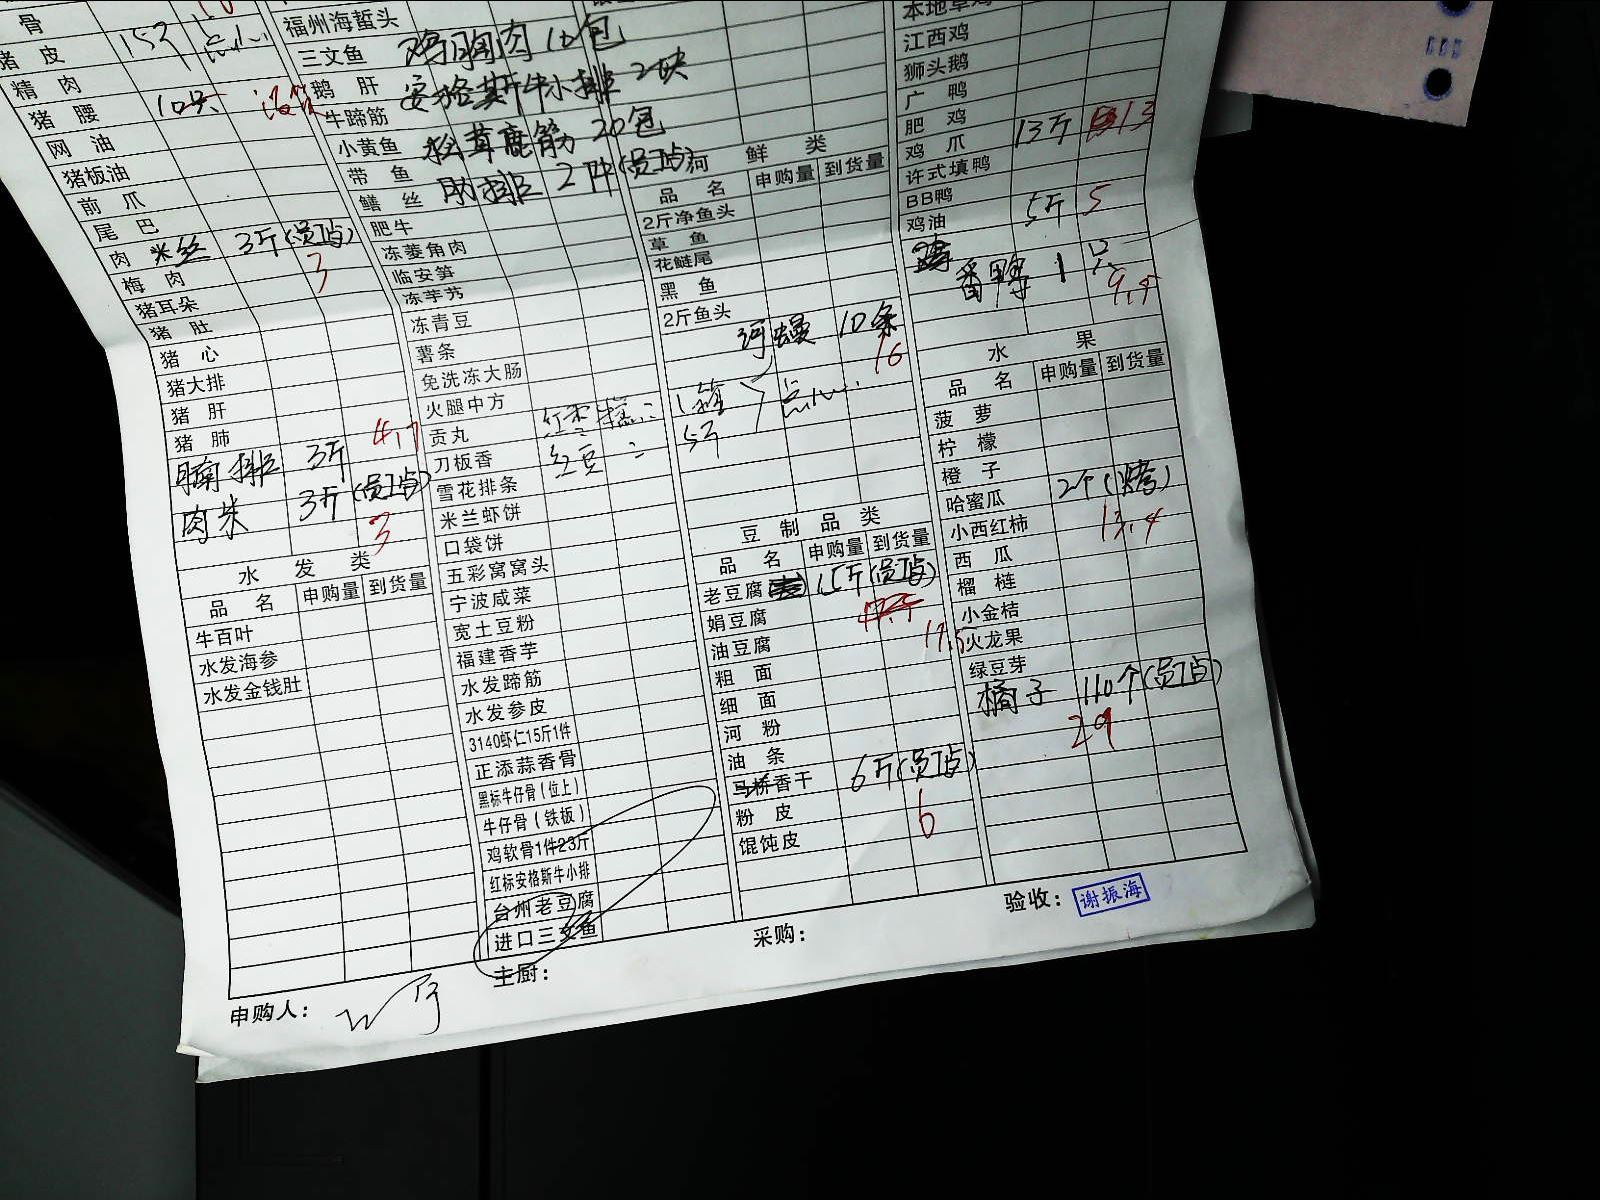 骨
猪皮 15斤
精肉
猪腰 10只
网油
猪板油
前爪
尾巴
肉丝 3斤(员工店)
梅肉 3
猪耳朵
猪肚
猪心
猪大排
猪肝
猪肺 4.7
腩排 3斤
肉米 3斤(员工店)
3
水发类
品名 申购量 到货量
牛百叶
水发海参
水发金钱肚
福州海蜇头
三文鱼 鸡胸肉 10包
鹅肝 安格斯牛小排 2块
牛蹄筋
小黄鱼 松茸鹿筋 20包
带鱼
鳝丝 肋排 2件(员工店)
肥牛
冻菱角肉
临安笋
冻芋艿
冻青豆
薯条
免洗冻大肠
火腿中方
贡丸
刀板香 红豆
雪花排条
米兰虾饼
口袋饼
五彩窝窝头
宁波咸菜
宽土豆粉
福建香芋
水发蹄筋
水发参皮
3140虾仁15斤1件
正添蒜香骨
黑标牛仔骨(位上)
牛仔骨(铁板)
鸡软骨1件23斤
红标安格斯牛小排
台州老豆腐
进口三文鱼
河鲜类
品名 申购量 到货量
2斤净鱼头
草鱼
花鲢尾
黑鱼
2斤鱼头
河鳗 10条
16
1箱
5斤
豆制品类
品名 申购量 到货量
老豆腐 15斤(员工店)
娟豆腐
油豆腐 17.5
粗面
细面
河粉
油条
马桥香干 6斤(员工店)
粉皮 6
馄饨皮
江西鸡
狮头鹅
广鸭
肥鸡
鸡爪 13斤 13
许式填鸭
BB鸭
鸡油 5斤 5
番鸭 1只
9.9
水果
品名 申购量 到货量
菠萝
柠檬
橙子
哈蜜瓜 2个
小西红柿 13.4
西瓜
榴梿
小金桔
火龙果
绿豆芽
橘子 110个(员工店)
29
申购人:
主厨:
采购:
验收: 谢振海